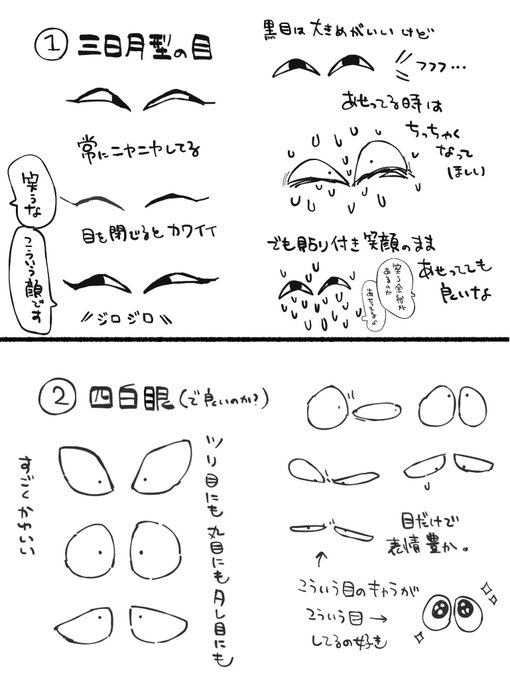 ① 三日月型の目
常にニヤニヤしてる
笑うな
こういう顔です
目を閉じるとカワイイ
〃ジロジロ〃
黒目は大きめがいいけど
フフフ…
あせってる時は
ちっちゃく
なって
ほしい
でも貼り付き笑顔のまま
あせってても
良いよな
笑う余裕が
あるのか
あせてるよ
② 四白眼(で良いのか?)
すごくかわいい
ツリ目にも丸目にもタレ目にも
目だけで
表情豊か。
↑
こういう目のキャラが
こういう目→
してるの好き